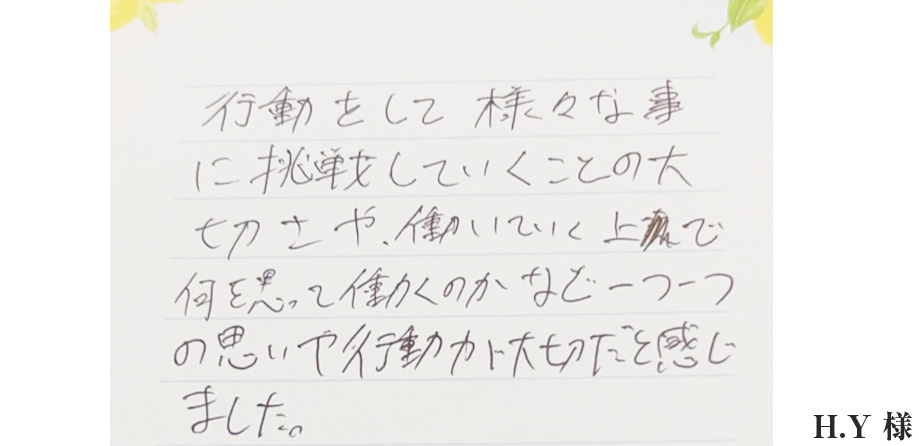 行動をして様々な事
に挑戦していくことの大
切さや、働いていく上で
何を思って働くのかなど一つ一つ
の思いや行動力が大切だと感じ
ました。
H.Y 様